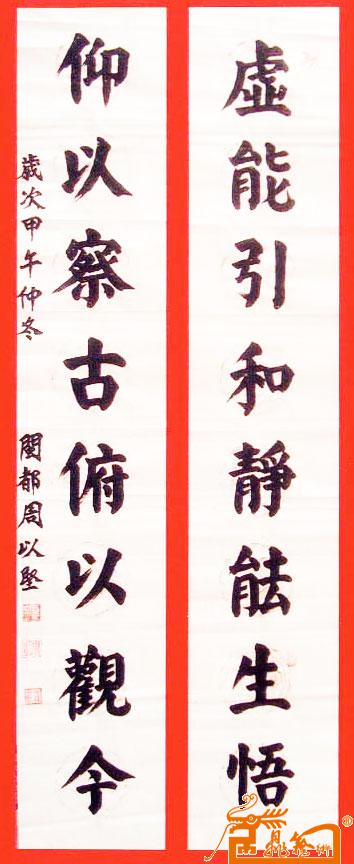 虛能引和靜能生悟
仰以察古俯以觀今
歲次甲午仲冬
閩都周以堅